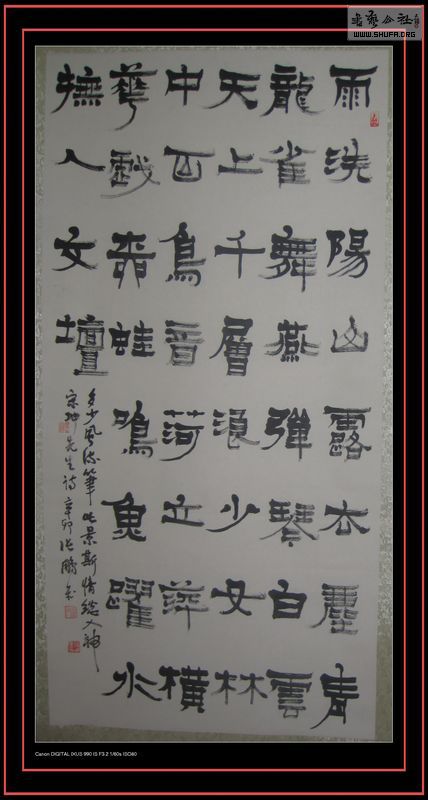 書藝公社
WWW.SHUFA.ORG
雨洗陽山露衣塵青
龍雀舞燕彈琴白雲
天上千層浪少女林
中百鳥音荷立萍橫
華戲蛙鳴魚躍水
撫人文壇
多少風流筆吐景斯情總入神
宗坤先生詩辛卯張鵬書
Canon DIGITAL IXUS 990 IS F3.2 1/60s ISO80